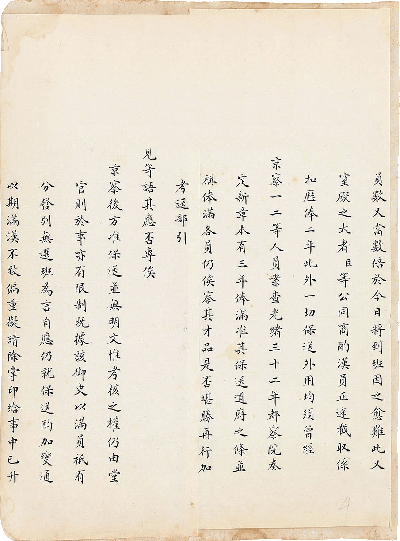 員數又當數倍於今日將到班因之愈難此又
窒礙之大者臣等公同商酌漢員正途截取係
扣歷俸二年此外一切保送外用均須曾經
京察一二等人員業查光緒三十二年都察院奏
定新章本有三年俸滿准其保送道府之條並
稱俸滿各員仍俟察其才品是否堪勝再行加
考送部引
見等語其應否專俟
京察後方准保送並無明文惟考核之權仍由堂
官則於事亦有限制就據該御史以滿員祇有
分發到無選班為言自應仍就保送酌加變通
以期滿漢不致偏重擬請除掌印給事中已升